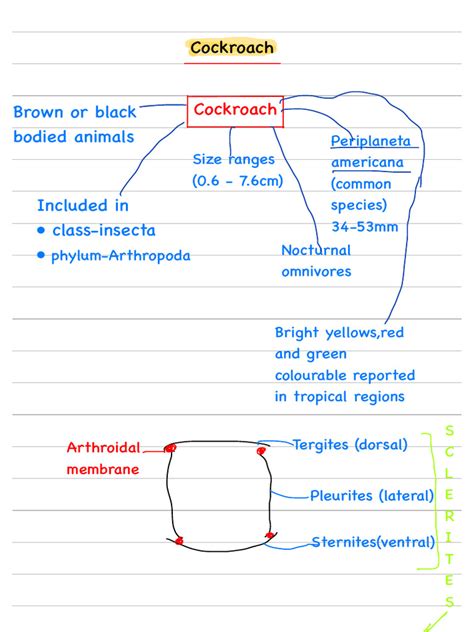 Cockroach
Cockroach
Brown or black
bodied animals
Size ranges
(0.6 - 7.6cm)
Periplaneta
americana
(common
species)
34-53mm
Included in
• class-insecta
• phylum-Arthropoda
Nocturnal
omnivores
Bright yellows,red
and green
colourable reported
in tropical regions
Arthroidal
membrane
Tergites (dorsal)
Pleurites (lateral)
Sternites(ventral)
SCLERITES